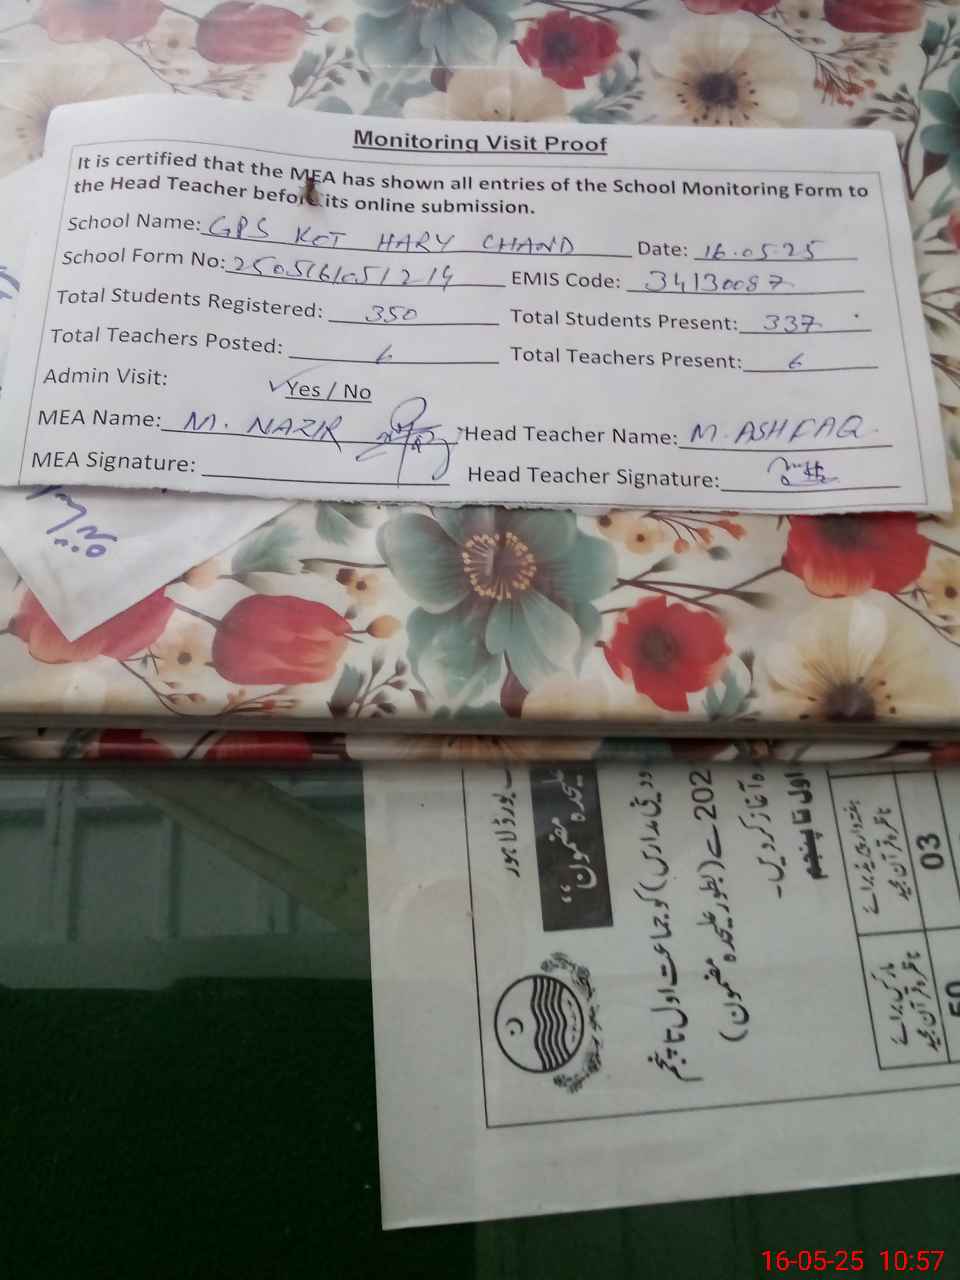 Monitoring Visit Proof
It is certified that the MEA has shown all entries of the School Monitoring Form to
the Head Teacher before its online submission.
School Name: GPS KOT HARY CHAND Date: 16.05.25
School Form No: 25051610512 14 EMIS Code: 34130087
Total Students Registered: 350 Total Students Present: 337
Total Teachers Posted: 6 Total Teachers Present: 6
Admin Visit: Yes / No
MEA Name: M. NAZIR Head Teacher Name: M. ASHFAQ
MEA Signature: Head Teacher Signature:
علیحدہ مضمون“
کو جماعت اول تا پنجم
202
(بطور علیحدہ مضمون)
اول تا پنجم
03
50
16-05-25 10:57